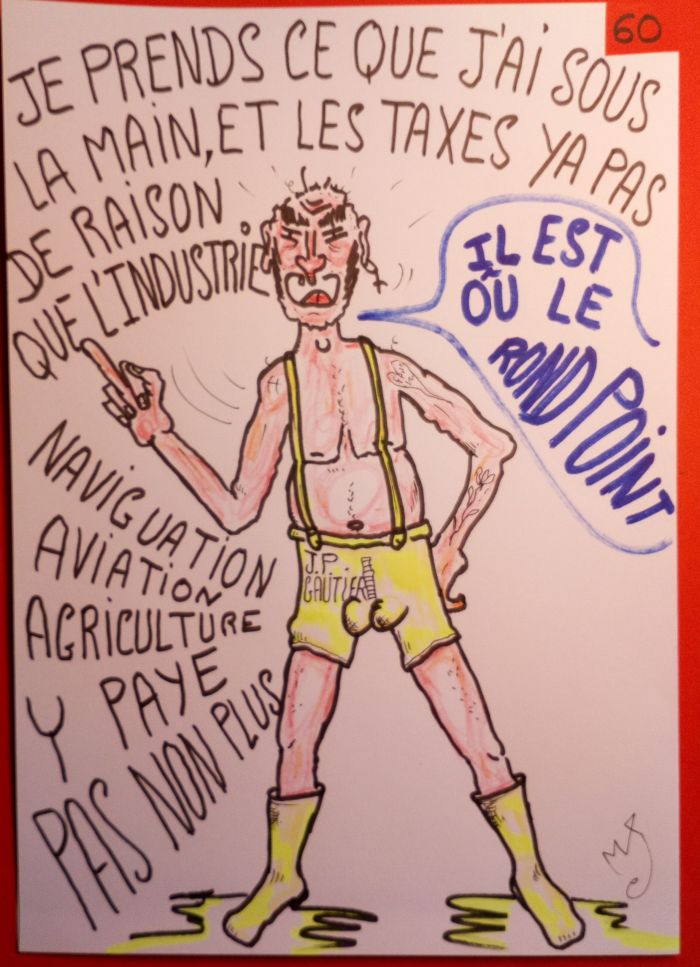 60
JE PRENDS CE QUE J'AI SOUS
LA MAIN, ET LES TAXES YA PAS
DE RAISON
QUE L'INDUSTRIE
NAVIGUATION
AVIATION
AGRICULTURE
Y PAYE
PAS NON PLUS
IL EST
OÛ LE
ROND POINT
J.P.
GAÜTIER